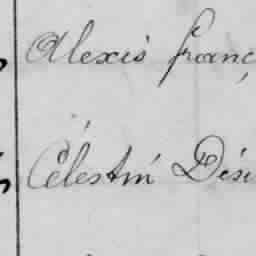 Alexis franç
Célestin Dési